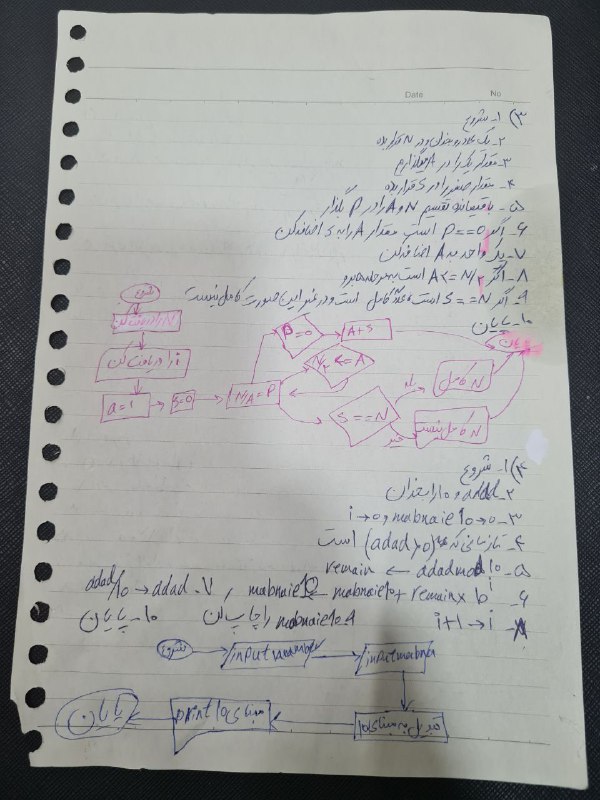 Date No
۳) ۱- شروع
۲- یک عدد بخوان و در N قرار بده
۳- مقدار یک را در A میگذارم
۴- مقدار صفر را در S قرار بده
۵- باقیمانده تقسیم N و A را در P بگذار
۶- اگر P==0 است مقدار A را به S اضافه کن
۷- یک واحد به A اضافه کن
۸- اگر A<=N/2 است به مرحله ۵ برو
۹- اگر S==N است عدد کامل است و در غیر این صورت کامل نیست
۱۰- پایان
شروع
N را دریافت کن
را دریافت کن
a=1
S=0
N/A=P
P=0
A+S
N/2 <= A
S==N
بله
خیر
N کامل
N کامل نیست
پایان
۴) ۱- شروع
۲- adad و b را بخوان
۳- i→0 و mabnaie10→0
۴- تا زمانی که (adad>0) است
۵- remain ← adadmod10
۶- mabnaie10 ← mabnaie10+remain×b^i
۷- adad/10→adad
۸- i+1→i
۹- mabnaie10 را چاپ کن
۱۰- پایان
شروع
input number
input mabna
تبدیل به مبنای ۱۰
print مبنای ۱۰
پایان